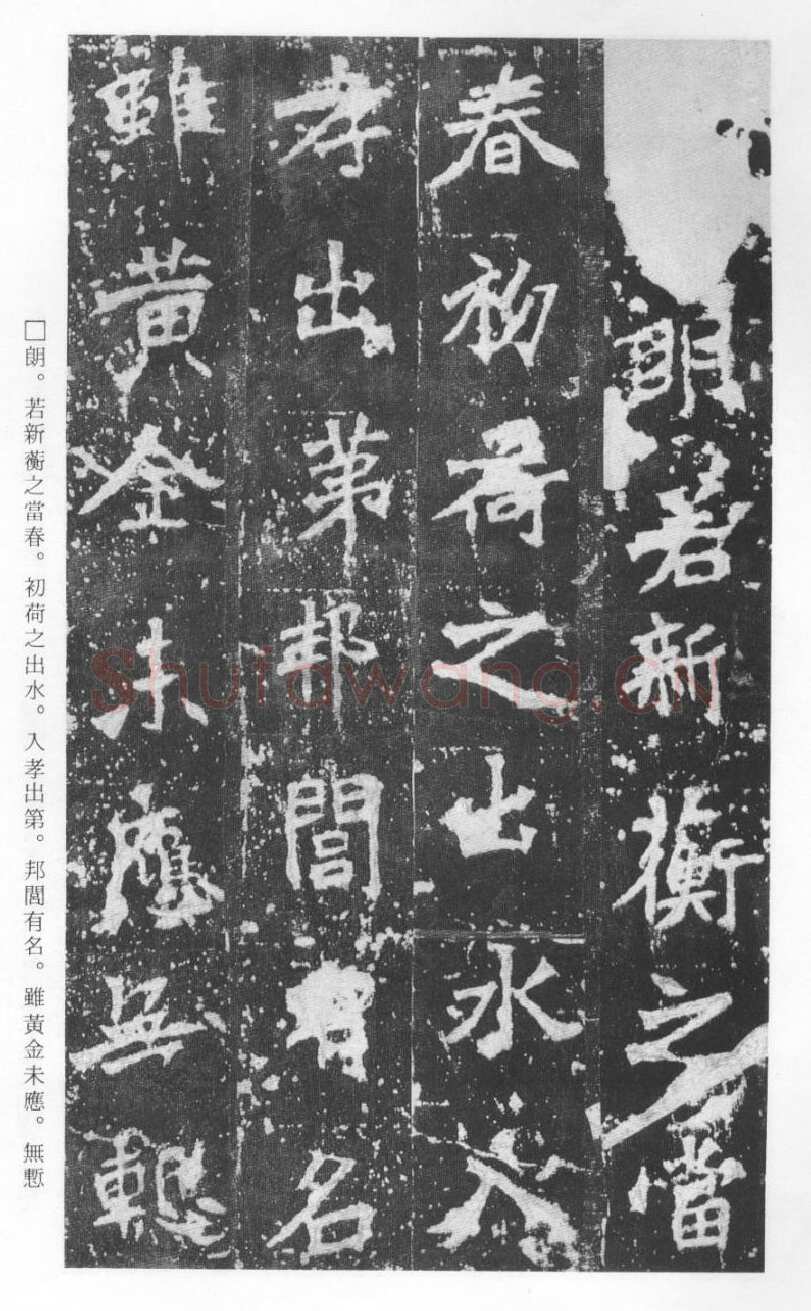 朗若新蘅之當
春初荷之出水入
孝出第邦閭有名
雖黃金未應無慙
□朗。若新蘅之當春。初荷之出水。入孝出第。邦閭有名。雖黃金未應。無慙
Shufawang.CN